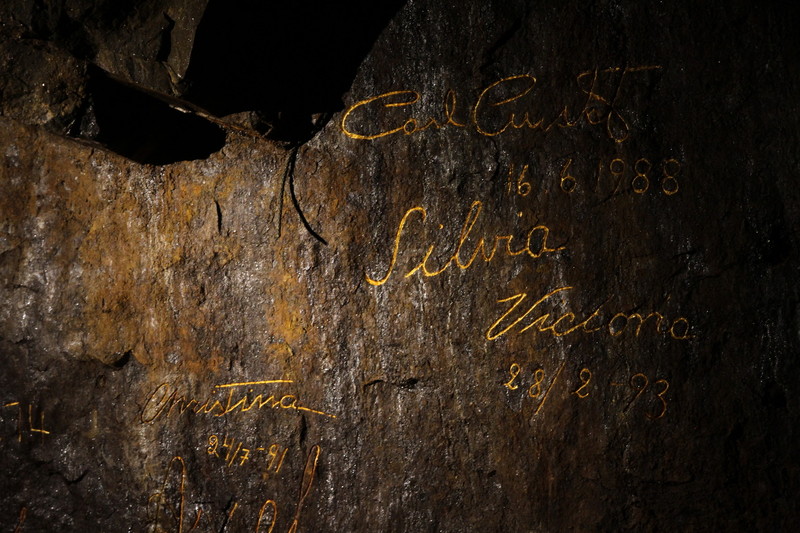 Carl Gustaf
16 6 1988
Silvia
Victoria
28/2 93
Christina
24/7-91